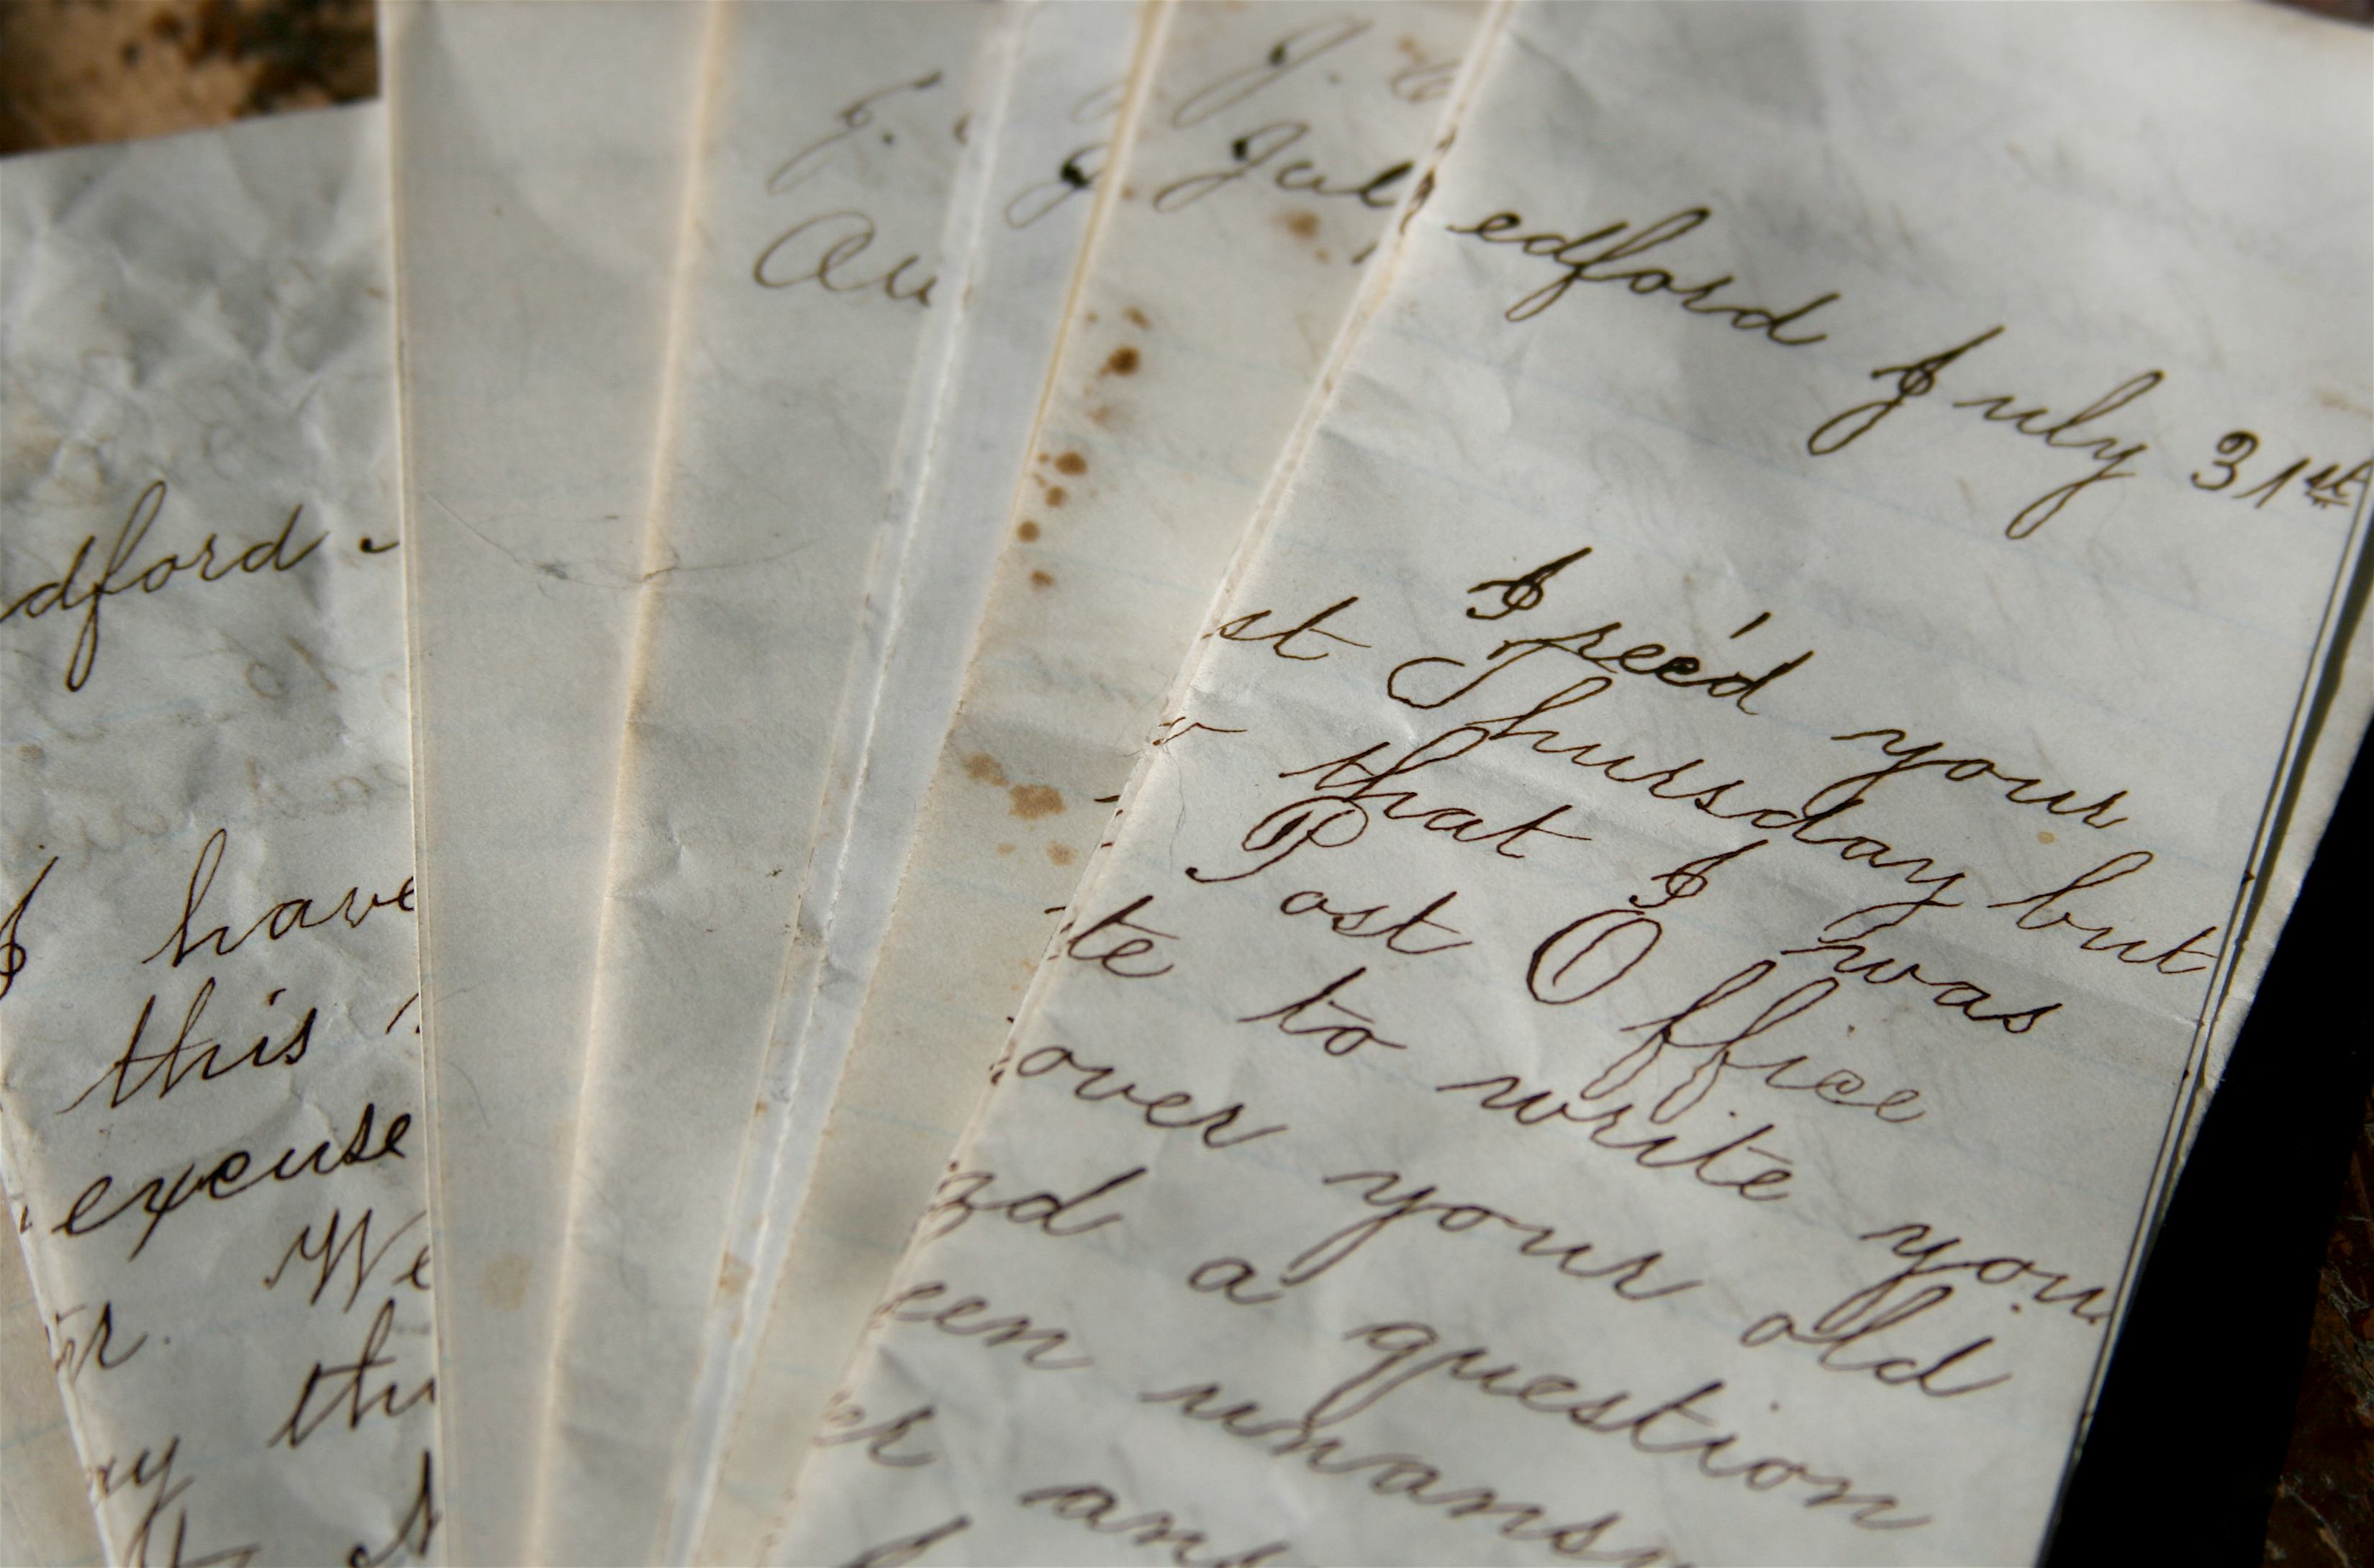 dford -
I have
this
excuse
We
thi
ay
E.
Au
J.
Jul
edford July 31st
I rec'd your
st Thursday but
that I was
Post Office
te to write you
over your old
zd a question
een unansw
er ans